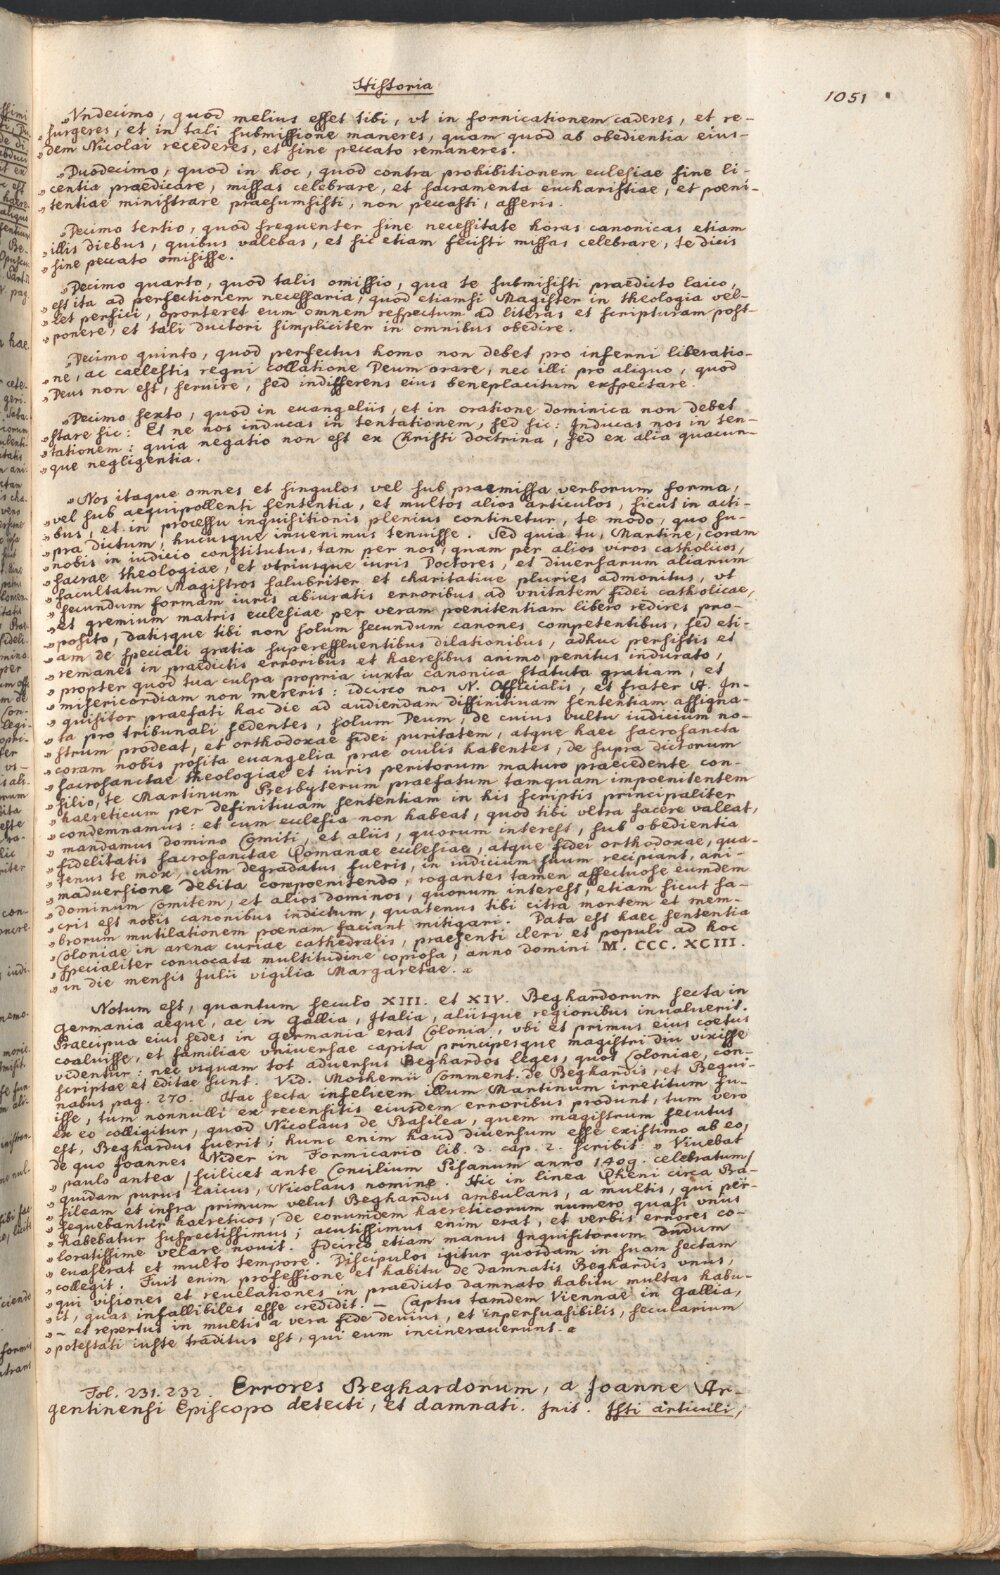 Historia
1051
„Vndecimo, quod melius esset tibi, vt in fornicationem caderes, et re-
„surgeres, et in tali submissione maneres, quam quod ab obedientia eius-
„dem Nicolai recederes, et sine peccato remaneres.
„Duodecimo, quod in hoc, quod contra prohibitionem eclesiae sine li-
„centia praedicare, missas celebrare, et sacramenta eucharistiae, et poeni-
„tentiae ministrare praesumsisti, non peccasti, asseris.
„Decimo tertio, quod frequenter sine necessitate horas canonicas etiam
„illis diebus, quibus valebas, et sic etiam fecisti missas celebrare, te dicis
„sine peccato omisisse.
„Decimo quarto, quod talis omissio, qua te submisisti praedicto laico,
„est ita ad perfectionem necessaria, quod etiamsi Magister in theologia vel-
„let perfici, oporteret eum omnem respectum ad literas et scripturam post-
„ponere, et tali ductori simpliciter in omnibus obedire.
„Decimo quinto, quod perfectus homo non debet pro inferni liberatio-
„ne, ac caelestis regni collatione Deum orare, nec illi pro aliquo, quod
„Deus non est, seruire, sed indifferens eius beneplacitum exspectare.
„Decimo sexto, quod in euangeliis, et in oratione dominica non debet
„stare sic: Et ne nos inducas in tentationem, sed sic: Inducas nos in ten-
„tationem: quia negatio non est ex Christi doctrina, sed ex alia quacun-
„que negligentia.
„Nos itaque omnes et singulos vel sub praemissa verborum forma,
„vel sub aequipollenti sententia, et multos alios articulos, sicut in acti-
„bus, et in processu inquisitionis plenius continetur, te modo, quo su-
„pra dictum, hucusque inuenimus tenuisse. Sed quia tu, Martine, coram
„nobis in iudicio constitutus, tam per nos, quam per alios viros catholicos,
„sacrae theologiae, et vtriusque iuris Doctores, et diuersarum aliarum
„facultatum Magistros salubriter et charitatiue pluries admonitus, vt
„secundum formam iuris abiuratis erroribus ad vnitatem fidei catholicae,
„et gremium matris ecclesiae per veram poenitentiam libero redires pro-
„posito, datisque tibi non solum secundum canones competentibus, sed eti-
„am de speciali gratia supereffluentibus dilationibus, adhuc persistis et
„remanes in praedictis erroribus et haeresibus animo penitus indurato,
„propter quod tua culpa propria iuxta canonica statuta gratiam, et
„misericordiam non mereris: idcirco nos N. Officialis, et frater A. In-
„quisitor praefati hac die ad audiendam diffinitiuam sententiam assigna-
„ta pro tribunali sedentes, solum Deum, de cuius vultu iudicium no-
„strum prodeat, et orthodoxae fidei puritatem, atque haec sacrosancta
„coram nobis posita euangelia prae oculis habentes, de supra dictorum
„sacrosanctae theologiae et iuris peritorum maturo praecedente con-
„silio, te Martinum Presbyterum praefatum tamquam impoenitentem
„haereticum per definitiuam sententiam in his scriptis principaliter
„condemnamus: et cum ecclesia non habeat, quod tibi vltra facere valeat,
„mandamus domino Comiti, et aliis, quorum interest, sub obedientia
„fidelitatis sacrosanctae Romanae ecclesiae, atque fidei orthodoxae, qua-
„tenus te mox, cum degradatus fueris, in iudicium suum recipiant, ani-
„maduersione debita compoenitendo, rogantes tamen affectuose eumdem
„dominum Comitem, et alios dominos, quorum interest, etiam sicut sa-
„cris est nobis canonibus indictum, quatenus tibi citra mortem et mem-
„brorum mutilationem poenam faciant mitigari. Data est haec sententia
„Coloniae in arena curiae cathedralis, praesenti cleri et populi ad hoc
„specialiter conuocata multitudine copiosa, anno domini M. CCC. XCIII.
„in die mensis Julii vigilia Margaretae.“
Notum est, quantum seculo XIII. et XIV. Beghardorum secta in
Germania aeque, ac in Gallia, Italia, aliisque regionibus inualuerit.
Praecipua eius sedes in Germania erat Colonia, vbi et primus eius coetus
coaluisse, et familiae vniuersae capita principesque magistri diu vixisse
videntur: nec vsquam tot aduersus Beghardos leges, quot Coloniae, con-
scriptae et editae sunt. Vid. Moshemii Comment. de Beghardis, et Begui-
nabus pag. 270. Hac secta infelicem illum Martinum irretitum fu-
isse, tum nonnulli ex recensitis eiusdem erroribus produnt, tum vero
ex eo colligitur, quod Nicolaus de Basilea, quem magistrum secutus
est, Beghardus fuerit; hunc enim haud diuersum esse existimo ab eo,
de quo Joannes Nider in Formicario lib. 3. cap. 2. scribit: „Viuebat
„paulo antea /scilicet ante Concilium Pisanum anno 1409. celebratum/
„quidam purus laicus, Nicolaus nomine. Hic in linea Rheni circa Ba-
„sileam et infra primum velut Beghardus ambulans, a multis, qui per-
„sequebantur haereticos, de eorumdem haereticorum numero quasi vnus
„habebatur suspectissimus; acutissimus enim erat, et verbis errores co-
„loratissime velare nouit. Idcirco etiam manus Inquisitorum dudum
„euaserat et multo tempore. Discipulos igitur quosdam in suam sectam
„collegit. Fuit enim professione et habitu de damnatis Beghardis vnus,
„qui visiones et reuelationes in praedicto damnato habitu multas habu-
„it, quas infallibiles esse credidit. – Captus tamdem Viennae in Gallia,
„– et repertus in multis a vera fide deuius, et inpersuasibilis, secularium
„potestati iuste traditus est, qui eum incinerauerunt.“
Fol. 231. 232. Errores Beghardorum, a Joanne Ar-
gentinensi Episcopo detecti, et damnati. Init. Isti articuli,